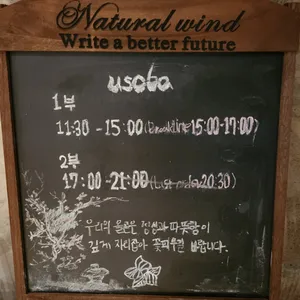 Natural wind
Write a better future
usoba
1부
11:30 - 15:00 (breaktime 15:00-17:00)
2부
17:00 - 21:00 (Last order 20:30)
우리의 음식은 정성과 따뜻함이
깊게 자리잡아 꽃피우길 바랍니다.